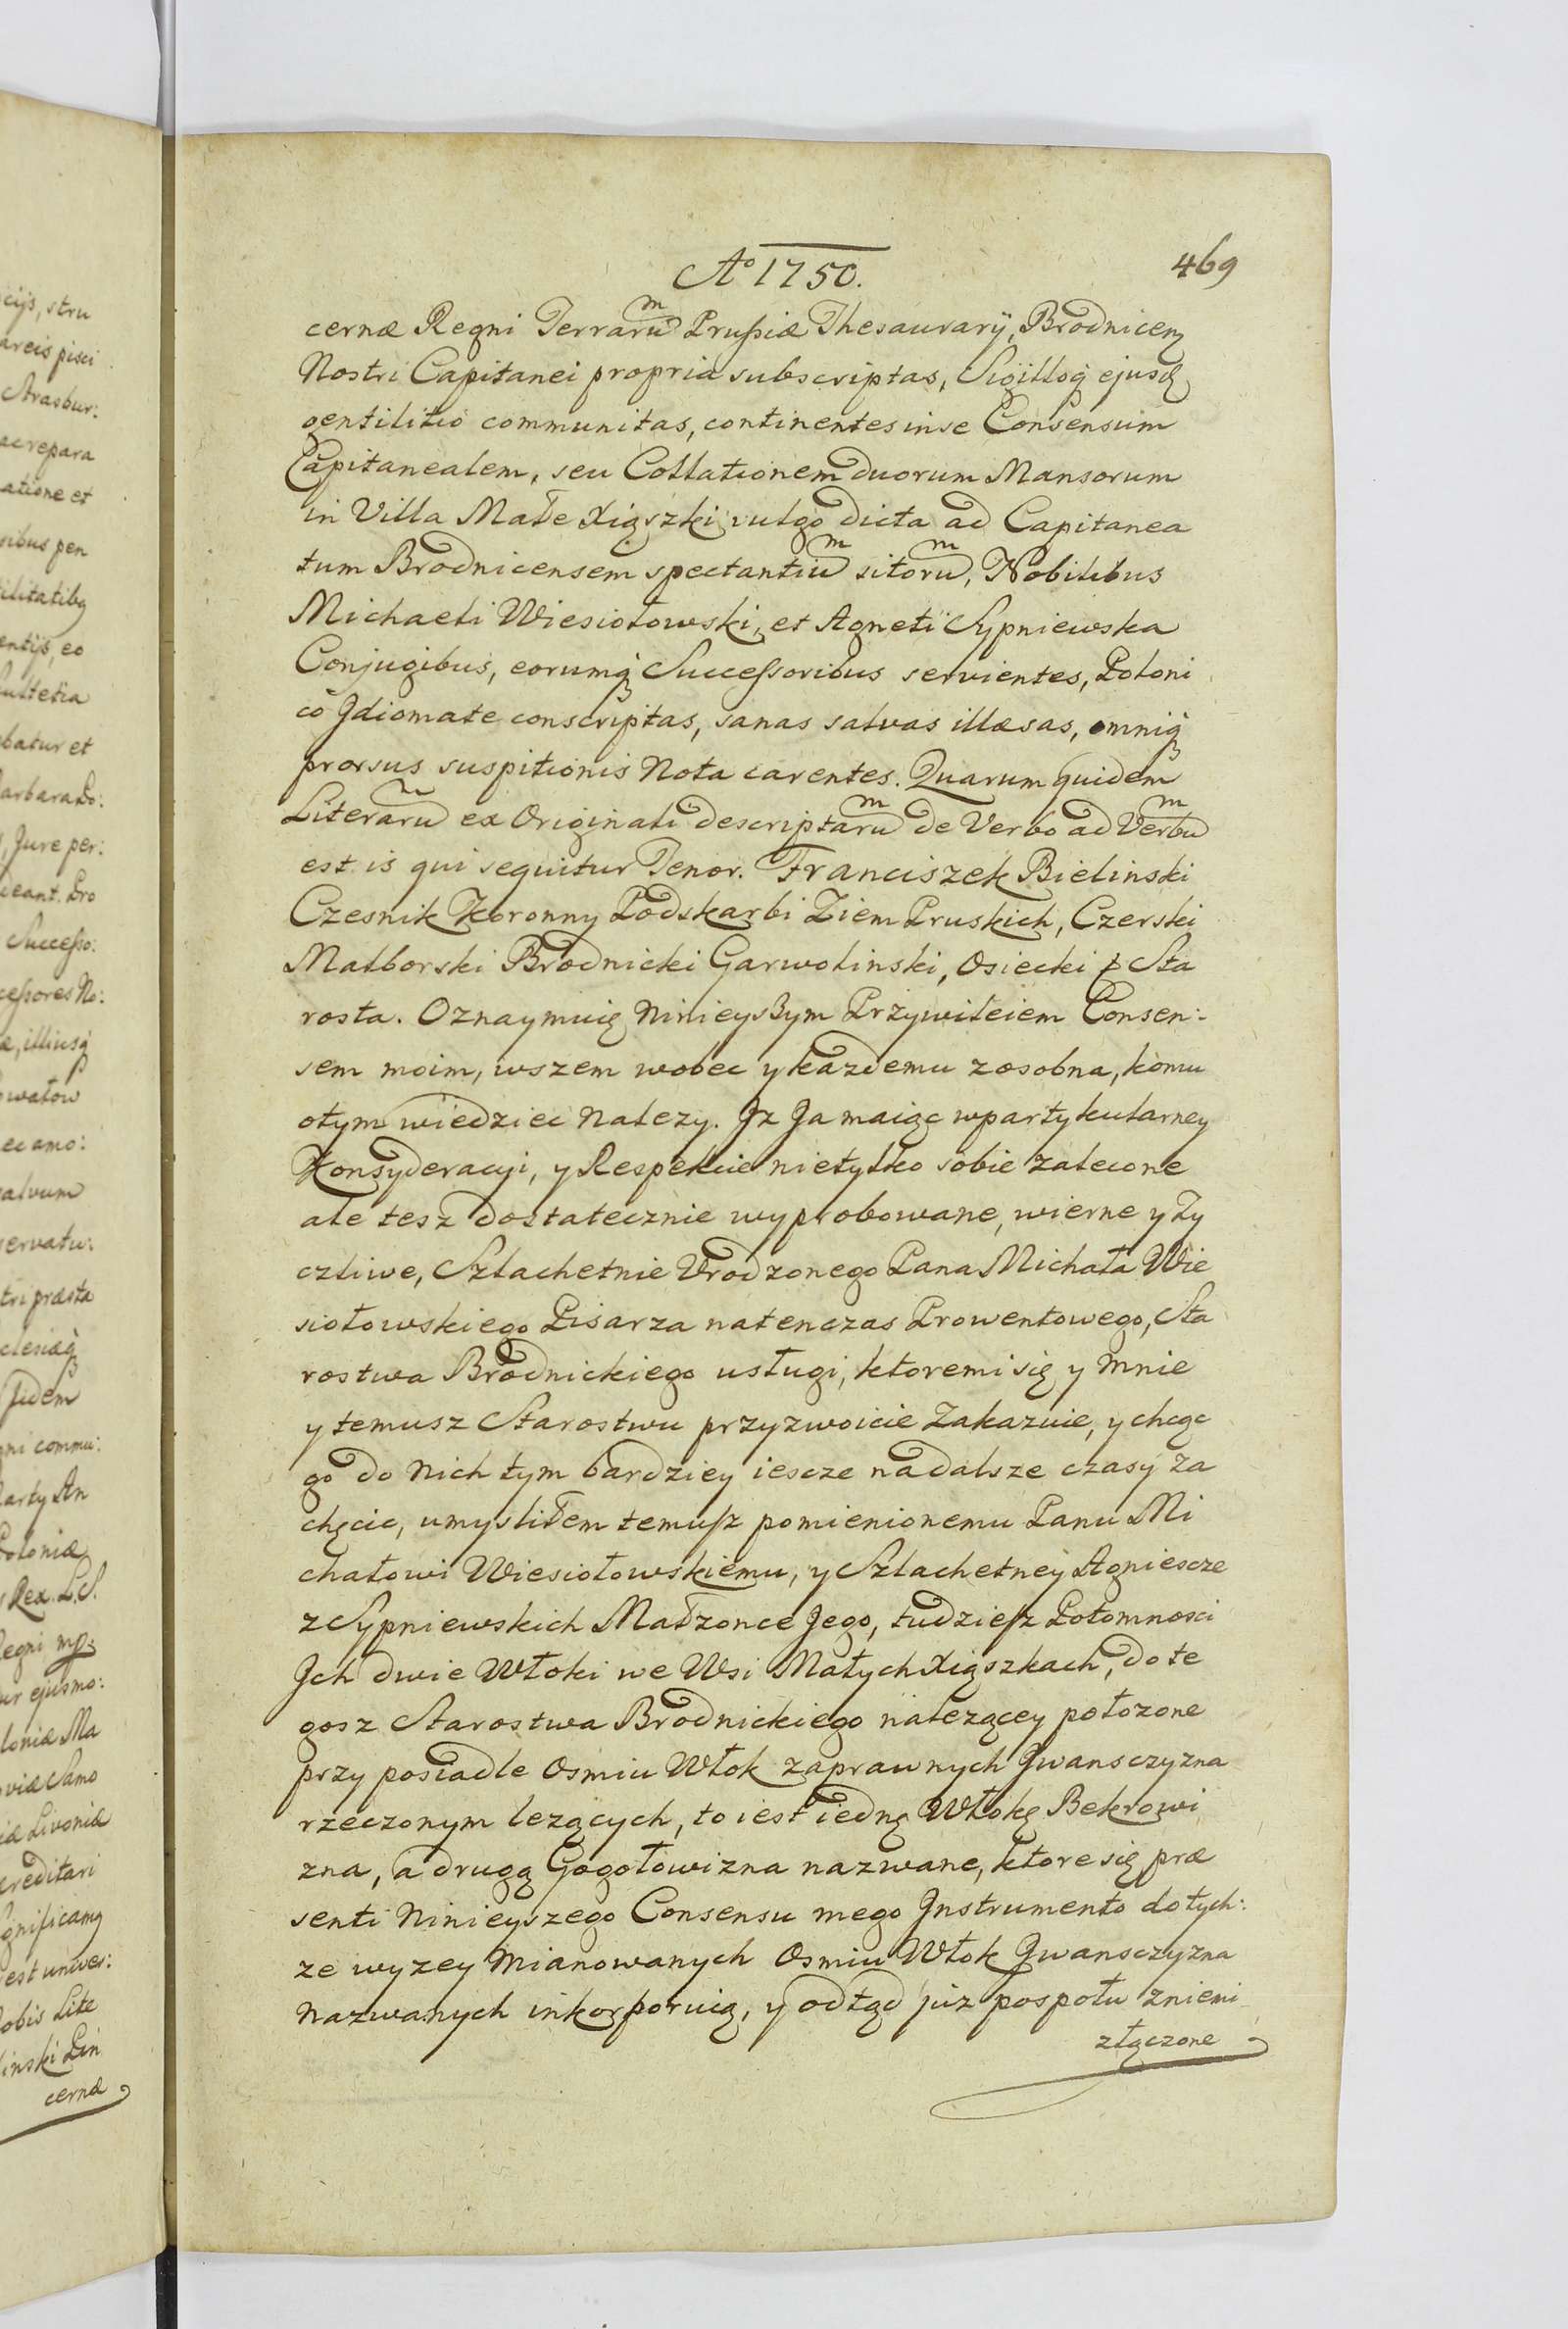 cijs, stru
areis pisci
Strasbur:
ac repara
atione et
sibus pen
ilitatibq
entijs, eo
Sultetia
batur et
arbara Do:
, Jure per:
ceant. Pro
Successo:
cessores No:
æ, illiusq
owatow
ec amo:
salvum
servatu:
tri præsta
clesiæq
fidem
gni commu:
arty An
Poloniæ
Rex. L.S.
Regni mp:
ur ejusmo:
loniæ Ma
oviæ Samo
iæ Livoniæ
æreditari
gnificamq
est univer:
obis Lite
linski Pin
cernæ
Aº 1750.
469
cernæ Regni Terrarum Prussiæ Thesaurarÿ, Brodnicenq
Nostri Capitanei propria subscriptas, Sigilloq ejusd
gentilitio communitas, continentes in se Consensum
Capitanealem, seu Collationem duorum Mansorum
in Villa Małe Xiąszki vulgo dicta ad Capitanea
tum Brodnicensem spectantium sitorum, Nobilibus
Michaeli Wiesiołowski, et Agneti Sypniewska
Conjugibus, eorumq Successoribus servientes, Poloni
cô Jdiomate conscriptas, sanas salvas illæsas, omniq
prorsus suspitionis Nota carentes. Quarum quidem
Literarum ex Originali descriptarum de Verbo ad Verbum
est is qui sequitur Tenor. Franciszek Bielinski
Czesnik Koronny Podskarbi Ziem Pruskich, Czerski
Malborski Brodnicki Garwolinski, Osiecki &c Sta
rosta. Oznaymuię Ninieyszym Przywileiem Consen:
sem moim, wszem wobec y kazdemu zosobna, komu
otym wiedziec Nalezy. Jz Ja maiąc wpartykularney
Konsyderacyi, y Respekcie nietylko sobie zalecone
ale tesz dostatecznie wyprobowane, wierne y Zy
czliwe, Szlachetnie Urodzonego Pana Michała Wie
siołowskiego Pisarza natenczas Prowentowego, Sta
rostwa Brodnickiego usługi, ktoremi się y Mnie
y temusz Starostwu przyzwoicie Zakazuie, y chcąc
go do Nich tym bardziey iescze nadalsze czasy za
chęcic, umysliłem temusz pomienionemu Panu Mi
chałowi Wiesiołowskiemu, y Szlachetney Agniescze
z Sypniewskich Małzonce Jego, tudziesz Potomnosci
Jch dwie Włoki we Wsi Małych Xiąszkach, do te
gosz Starostwa Brodnickiego nalezącey połozone
przy posiadle Osmiu Włok zaprawnych Jwansczyzna
rzeczonym lezących, to iest iedną Włokę Bekrowi
zna, a drugą Gogołowizna nazwane, ktore się præ
senti Ninieyszego Consensu mego Jnstrumento dotych:
ze wyzey Mianowanych Osmiu Włok Jwansczyzna
Nazwanych inkorporuią, y odtąd juz pospołu zniemi
złączone